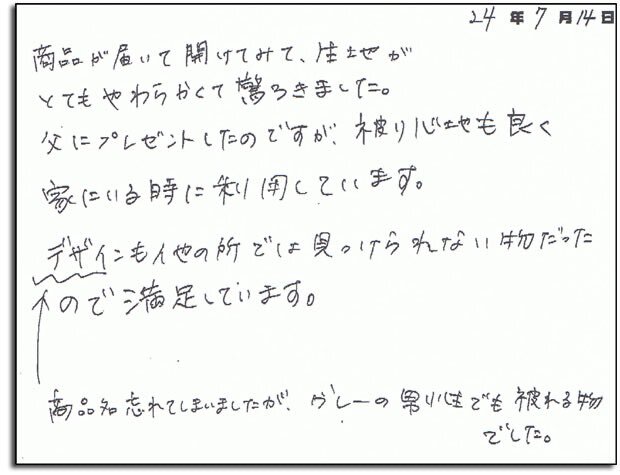 24年7月14日
商品が届いて開けてみて、生地が
とてもやわらかくて驚ろきました。
父にプレゼントしたのですが、被り心地も良く
家にいる時に利用しています。
デザインも他の所では見つけられない物だった
ので満足しています。
商品名忘れてしまいましたが、グレーの男性でも被れる物
でした。